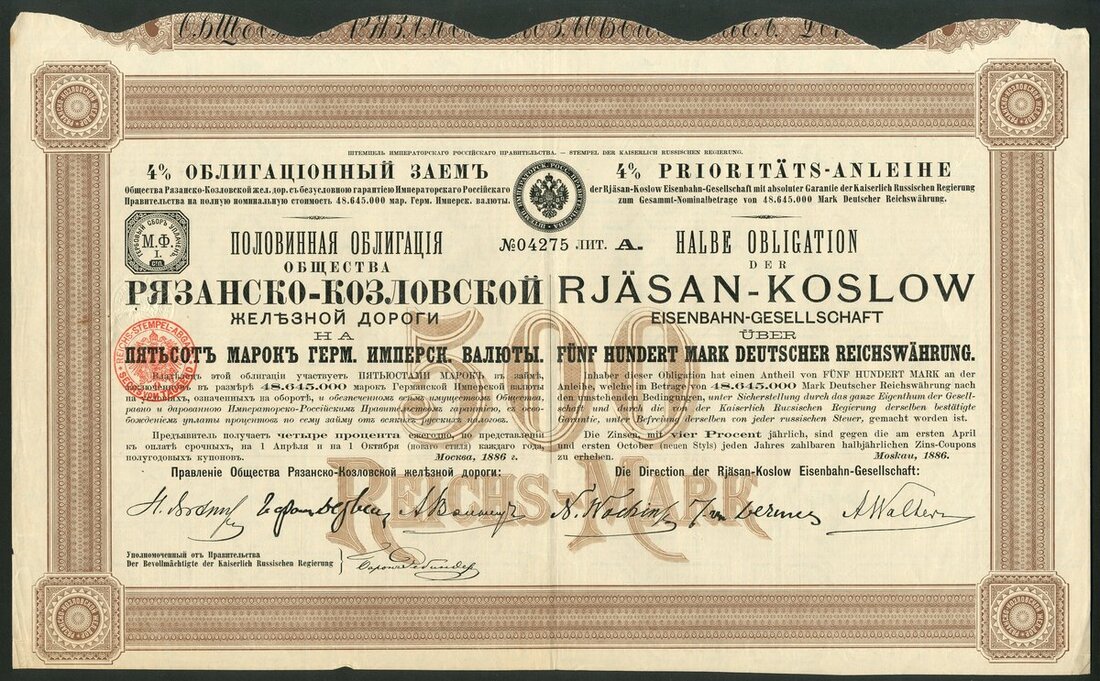 ШТЕМПЕЛЬ ИМПЕРАТОРСКАГО РОССІЙСКАГО ПРАВИТЕЛЬСТВА. — STEMPEL DER KAISERLICH RUSSISCHEN REGIERUNG.
4% ОБЛИГАЦІОННЫЙ ЗАЕМЪ
Общества Рязанско-Козловской жел. дор. съ безусловною гарантіею Императорскаго Россійскаго
Правительства на полную номинальную стоимость 48.645.000 мар. Герм. Имперск. валюты.
4% PRIORITÄTS-ANLEIHE
der Rjäsan-Koslow Eisenbahn-Gesellschaft mit absoluter Garantie der Kaiserlich Russischen Regierung
zum Gesammt-Nominalbetrage von 48.645.000 Mark Deutscher Reichswährung.
ГЕРБОВЫЙ СБОРЪ УПЛАЧЕНЪ
М.Ф.
I.
№04275 ЛИТ. A.
ПОЛОВИННАЯ ОБЛИГАЦІЯ
ОБЩЕСТВА
РЯЗАНСКО-КОЗЛОВСКОЙ
ЖЕЛѢЗНОЙ ДОРОГИ
НА
ПЯТЬСОТЪ МАРОКЪ ГЕРМ. ИМПЕРСК. ВАЛЮТЫ.
HALBE OBLIGATION
DER
RJÄSAN-KOSLOW
EISENBAHN-GESELLSCHAFT
ÜBER
FÜNF HUNDERT MARK DEUTSCHER REICHSWÄHRUNG.
500
REICHS-MARK
REICHS-STEMPEL-ABGABE
Владѣлецъ этой облигаціи участвуетъ ПЯТЬЮСТАМИ МАРОКЪ въ займѣ,
заключенномъ въ размѣрѣ 48.645.000 марокъ Германской Имперской валюты
на условіяхъ, означенныхъ на оборотѣ, и обезпеченномъ всѣмъ имуществомъ Общества,
равно и дарованною Императорско-Россійскимъ Правительствомъ гарантіею, и осво-
божденіемъ уплаты процентовъ по сему займу отъ всякихъ русскихъ налоговъ.
Предъявитель получаетъ четыре процента ежегодно, по представленіи
къ оплатѣ срочныхъ, на 1 Апрѣля и на 1 Октября (новаго стиля) каждаго года,
полугодовыхъ купоновъ.
Москва, 1886 г.
Inhaber dieser Obligation hat einen Antheil von FÜNF HUNDERT MARK an der
Anleihe, welche im Betrage von 48.645.000 Mark Deutscher Reichswährung nach
den umstehenden Bedingungen, unter Sicherstellung durch das ganze Eigenthum der Gesell-
schaft und durch die von der Kaiserlich Russischen Regierung derselben bestätigte
Garantie, unter Befreiung derselben von jeder russischen Steuer, gemacht worden ist.
Die Zinsen, mit vier Procent jährlich, sind gegen die am ersten April
und ersten October (neuen Styls) jeden Jahres zahlbaren halbjährlichen Zins-Coupons
zu erheben.
Moskau, 1886.
Правленіе Общества Рязанско-Козловской желѣзной дороги:
Die Direction der Rjäsan-Koslow Eisenbahn-Gesellschaft:
Уполномоченный отъ Правительства
Der Bevollmächtigte der Kaiserlich Russischen Regierung